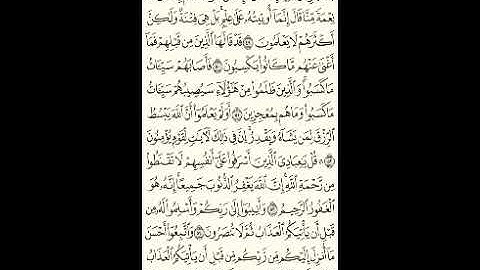 نِعْمَةً مِّنَّا قَالَ إِنَّمَا أُوتِيتُهُۥ عَلَىٰ عِلْمِۭ بَلْ هِىَ فِتْنَةٌ وَلَٰكِنَّ
أَكْثَرَهُمْ لَا يَعْلَمُونَ ٤٩ قَدْ قَالَهَا ٱلَّذِينَ مِن قَبْلِهِمْ فَمَآ
أَغْنَىٰ عَنْهُم مَّا كَانُوا۟ يَكْسِبُونَ ٥٠ فَأَصَابَهُمْ سَيِّـَٔاتُ
مَا كَسَبُوا۟ وَٱلَّذِينَ ظَلَمُوا۟ مِنْ هَٰٓؤُلَآءِ سَيُصِيبُهُمْ سَيِّـَٔاتُ
مَا كَسَبُوا۟ وَمَا هُم بِمُعْجِزِينَ ٥١ أَوَلَمْ يَعْلَمُوٓا۟ أَنَّ ٱللَّهَ يَبْسُطُ
ٱلرِّزْقَ لِمَن يَشَآءُ وَيَقْدِرُ إِنَّ فِى ذَٰلِكَ لَءَايَٰتٍ لِّقَوْمٍ يُؤْمِنُونَ
٥٢ قُلْ يَٰعِبَادِىَ ٱلَّذِينَ أَسْرَفُوا۟ عَلَىٰٓ أَنفُسِهِمْ لَا تَقْنَطُوا۟
مِن رَّحْمَةِ ٱللَّهِ إِنَّ ٱللَّهَ يَغْفِرُ ٱلذُّنُوبَ جَمِيعًا إِنَّهُۥ هُوَ
ٱلْغَفُورُ ٱلرَّحِيمُ ٥٣ وَأَنِيبُوٓا۟ إِلَىٰ رَبِّكُمْ وَأَسْلِمُوا۟ لَهُۥ مِن
قَبْلِ أَن يَأْتِيَكُمُ ٱلْعَذَابُ ثُمَّ لَا تُنصَرُونَ ٥٤ وَٱتَّبِعُوٓا۟ أَحْسَنَ
مَآ أُنزِلَ إِلَيْكُم مِّن رَّبِّكُم مِّن قَبْلِ أَن يَأْتِيَكُمُ ٱلْعَذَابُ